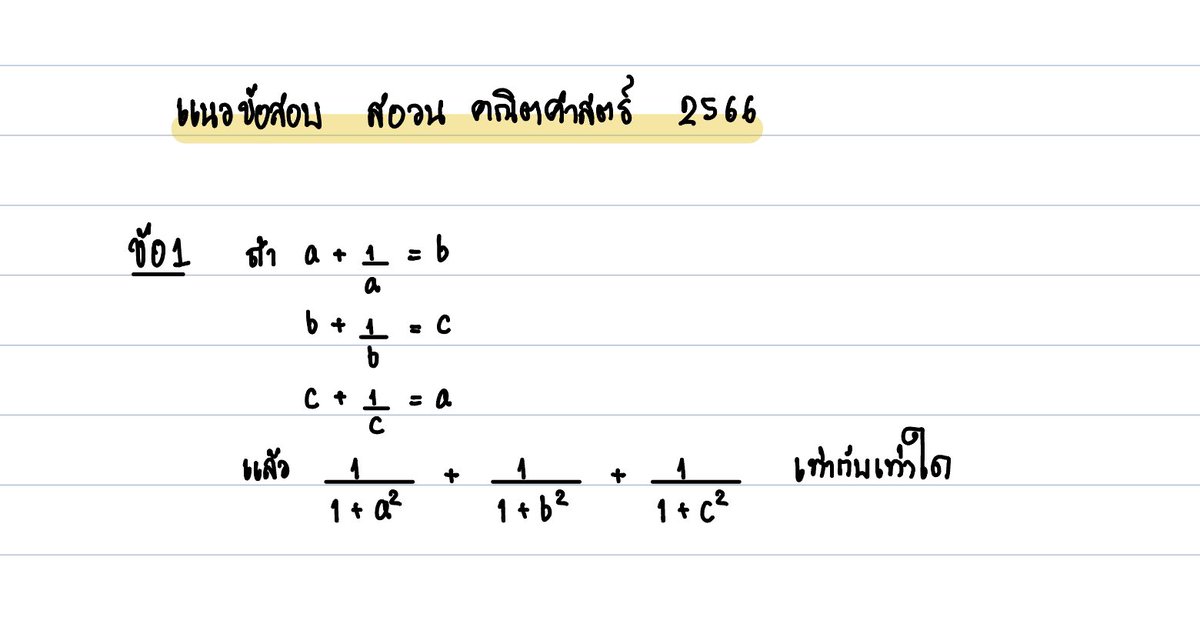 แนวข้อสอบ สอวน คณิตศาสตร์ 2566
ข้อ1 ถ้า a + 1/a = b
b + 1/b = c
c + 1/c = a
แล้ว 1/(1 + a²) + 1/(1 + b²) + 1/(1 + c²) เท่ากับเท่าใด